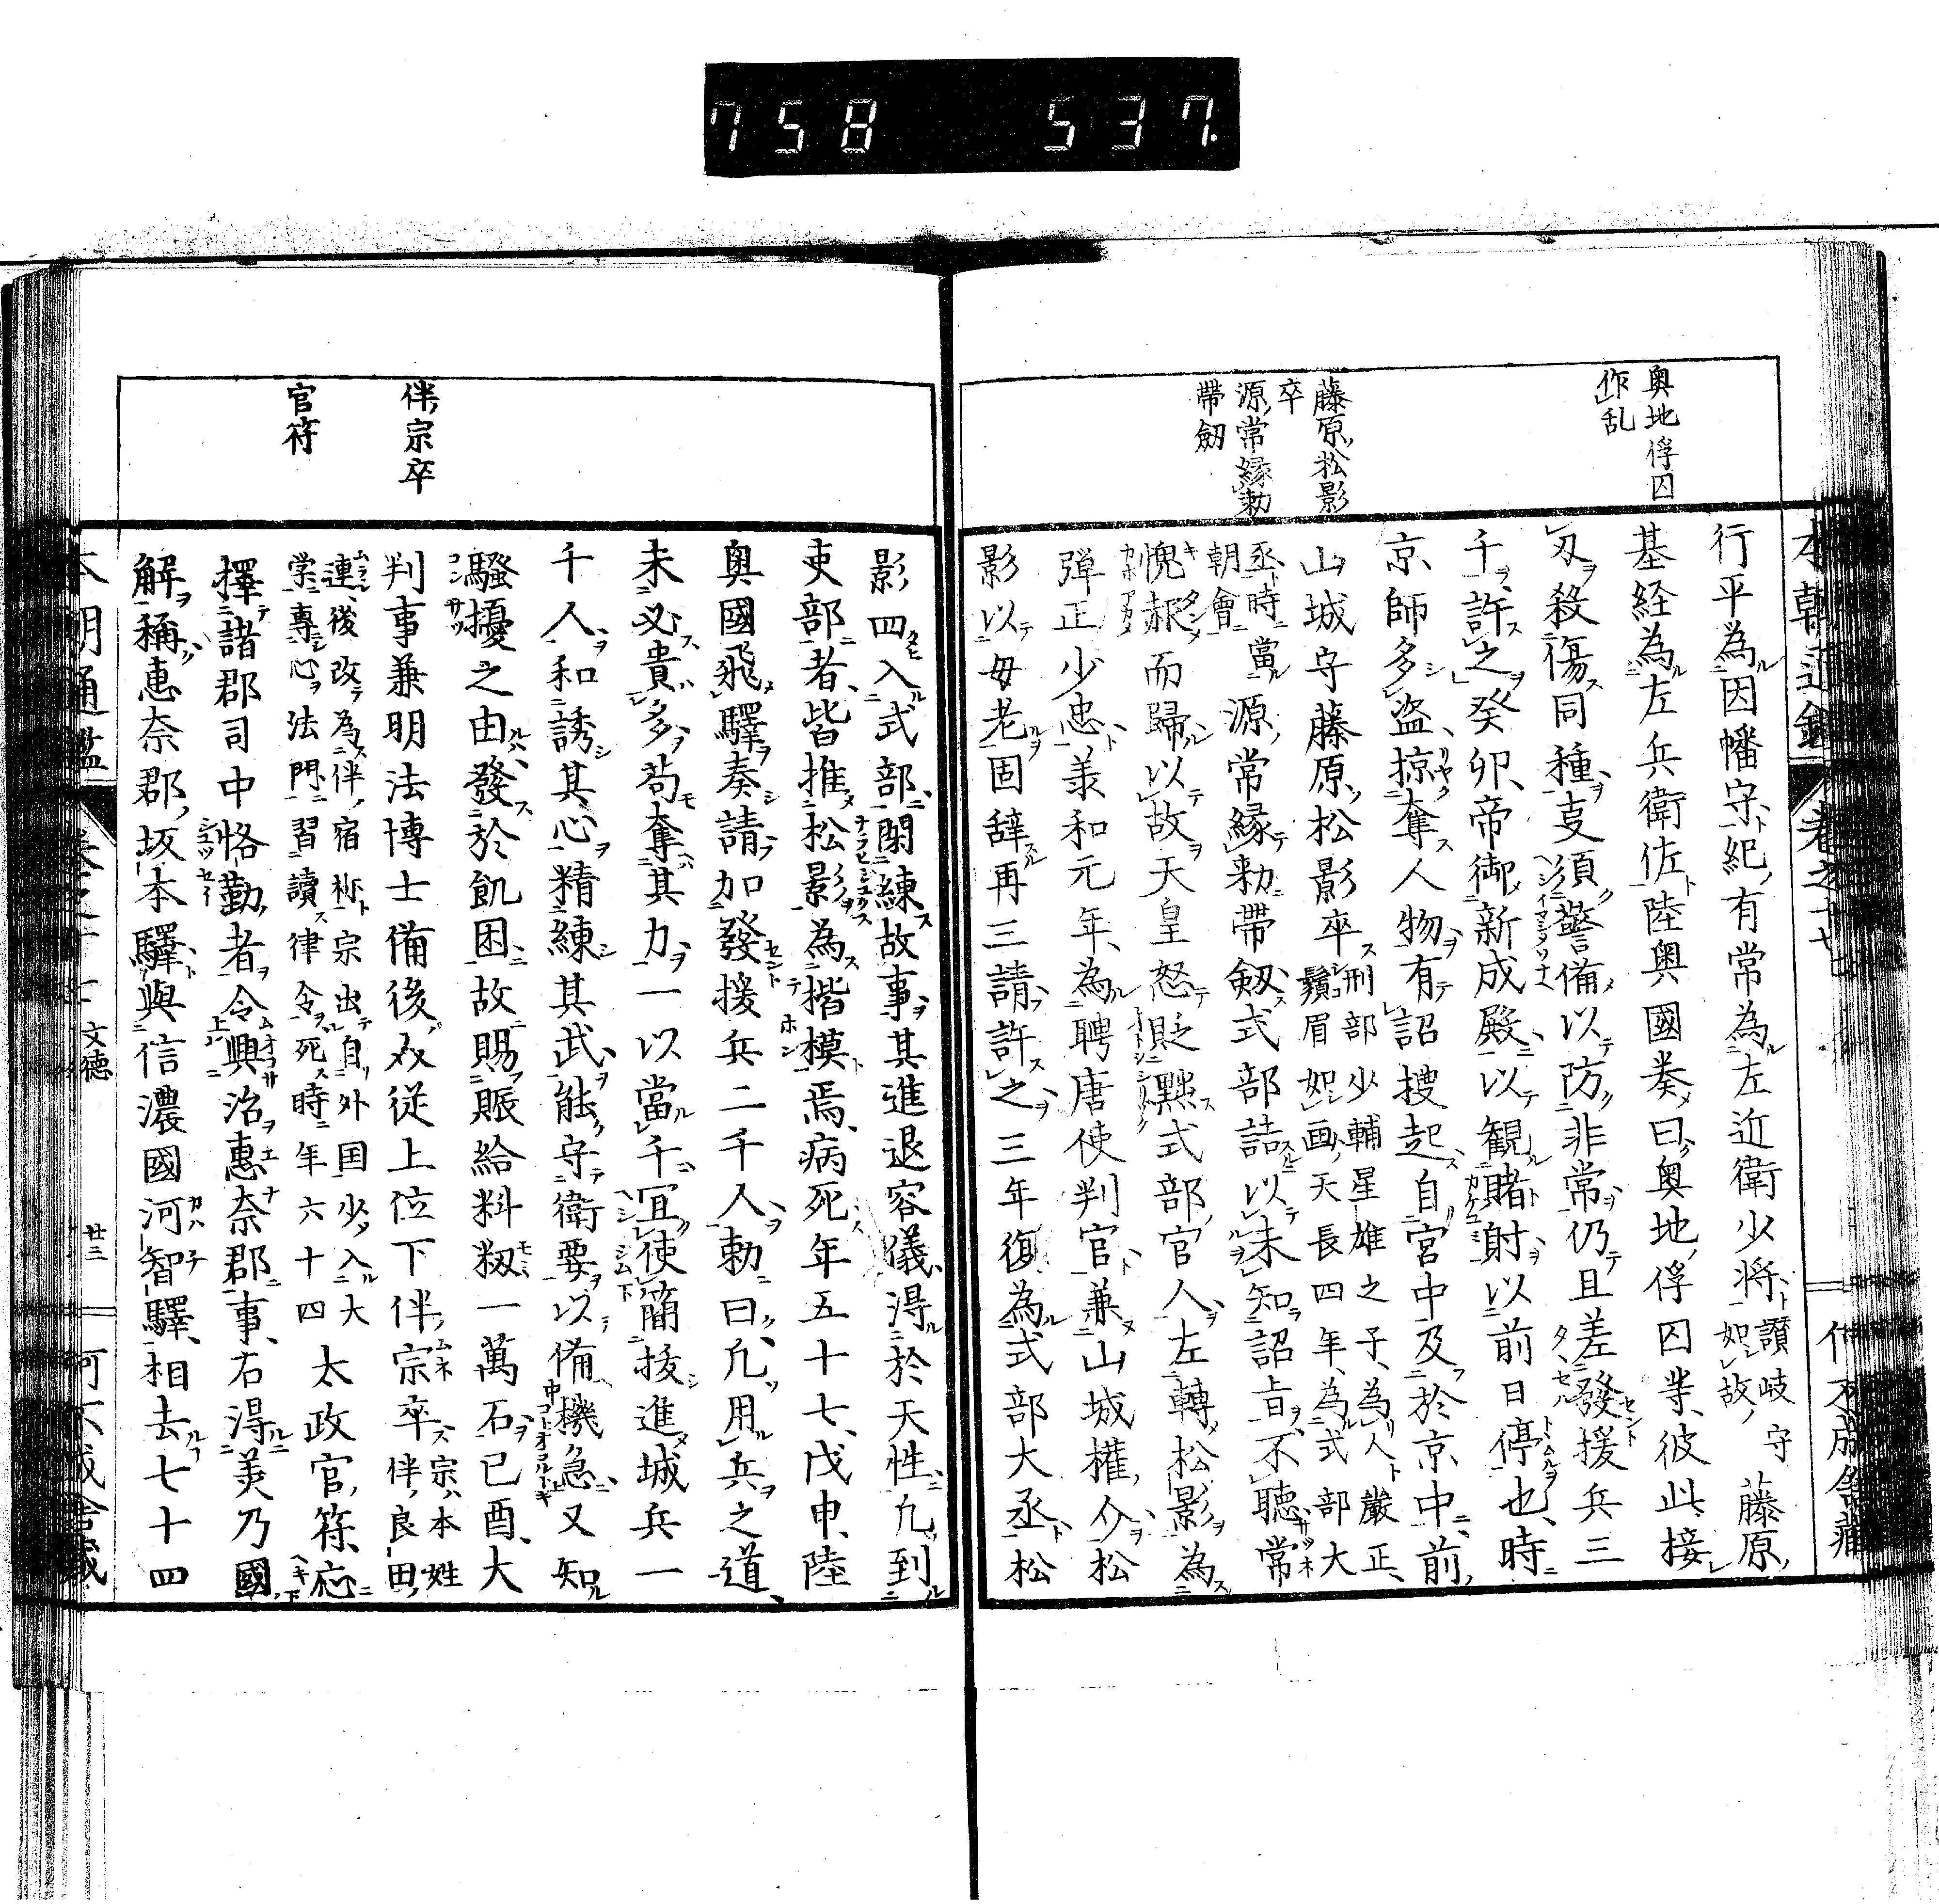 758 537.
奥地俘囚
作乱
藤原松影
卒
源常縁勅
帶劔
本朝通鑑卷之十七
行平為因幡守紀有常為左近衛少将讃岐守如故藤原
基経為左兵衛佐陸奥國奏曰奥地俘囚等彼此接
刄殺傷同種支須警備以防非常仍且差發援兵三
千許之癸卯帝御新成殿以観賭射以前日停也時
京師多盗掠奪人物有詔捜起自宮中及於京中前
山城守藤原松影卒刑部少輔星雄之子為人嚴正
鬚眉如画天長四年為式部大
丞時當源常縁勅帶劔式部詰以未知詔旨不聽常
朝會
愧赧而歸以故天皇怒貶黙式部官人左轉松影為
弾正少忠兼和元年為聘唐使判官兼山城權介松
影以母老固辞再三請許之三年復為式部大丞松
影四入式部閑練故事其進退容儀得於天性凢到
吏部者皆推松影為楷模焉病死年五十七戊申陸
奥國飛驛奏請加發援兵二千人勅曰凢用兵之道
未必貴多苟奪其力一以當千冝使簡抜進城兵一
千人和誘其心精練其武能守衛要以備機急又知
騒擾之由發於飢困故賜賑給料籾一萬石已酉大
判事兼明法博士備後权従上位下伴宗卒宗本姓
伴良田
連後改為伴宿祢宗出自外国少入大
斈專心法門習讀律令死時年六十四太政官符応
擇諸郡司中恪勤者令興治惠奈郡事右得美乃國
解稱惠奈郡坂本驛與信濃國河智驛相去七十四
伴宗卒
官符
本朝通鑑
文徳
廿三